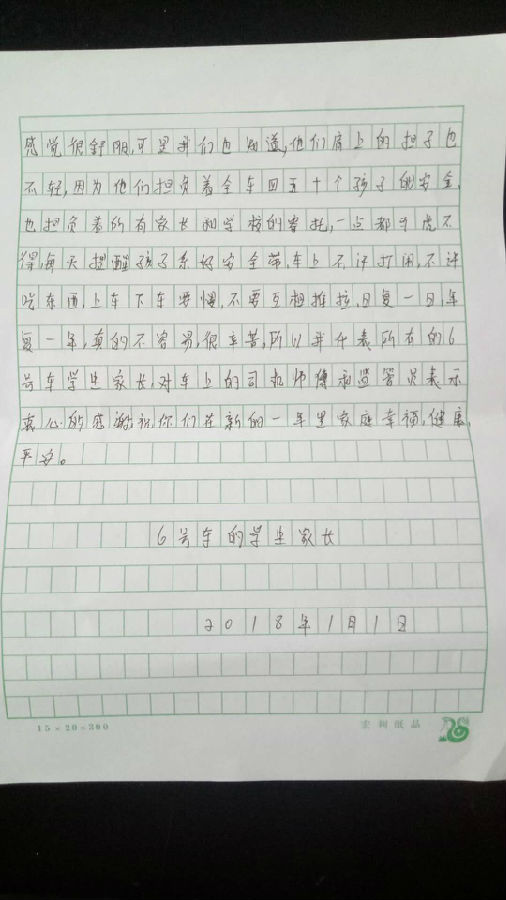 感觉很舒服,可是我们也知道,他们肩上的担子也
不轻,因为他们担负着全车四五十个孩子的安全,
也担负着所有家长和学校的寄托,一点都马虎不
得,每天提醒孩子系好安全带,车上不许打闹,不许
吃东西上车下车要慢,不要互相推拉,日复一日,年
复一年,真的不容易,很辛苦,所以我代表所有的6
号车学生家长,对车上的司机师傅和监管员表示
衷心的感谢,祝你们在新的一年里家庭幸福,健康,
平安。
6号车的学生家长
2018年1月1日
15×20=300
宏利纸品